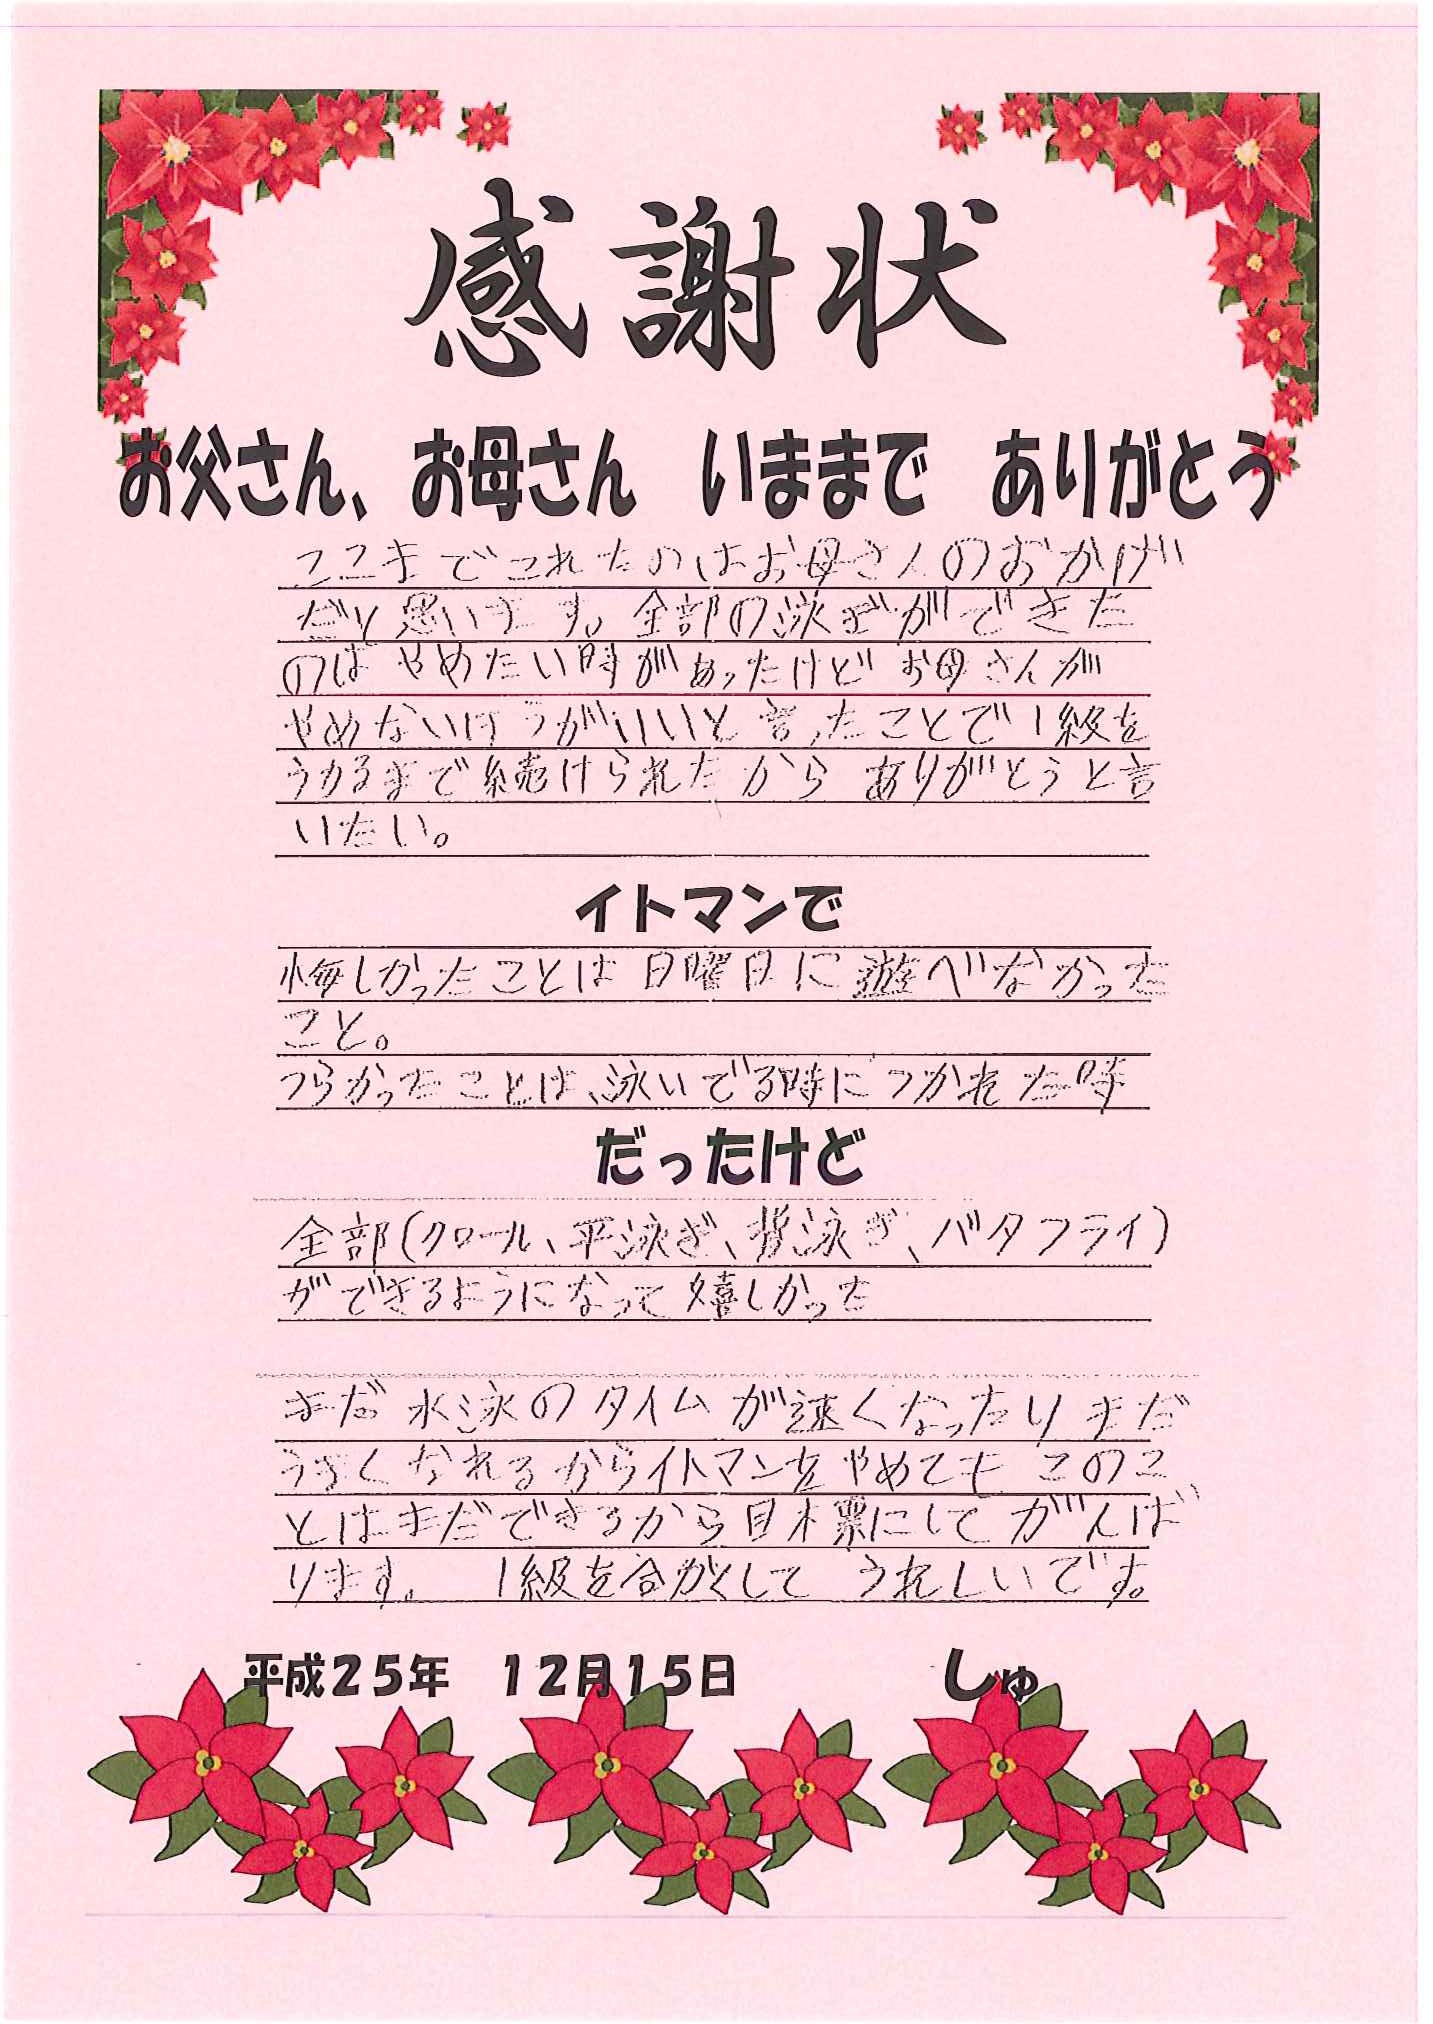 感謝状
お父さん、お母さん　いままで　ありがとう
ここまでこれたのはお母さんのおかげ
だと思います。全部の泳ぎができた
のは やめたい時があったけど お母さんが
やめないほうがいいと言ったことで1級を
うかるまで続けられたから ありがとうと言
いたい。
イトマンで
悔しかったことは日曜日に遊べなかった
こと。
つらかったことは、泳いでる時につかれた時
だったけど
全部(クロール、平泳ぎ、背泳ぎ、バタフライ)
ができるようになって嬉しかった
まだ水泳のタイムが速くなったりまだ
うまくなれるからイトマンをやめても このこ
とはまだできるから目標にして がんば
ります。 1級を合かくして うれしいです。
平成25年　12月15日　しゅ